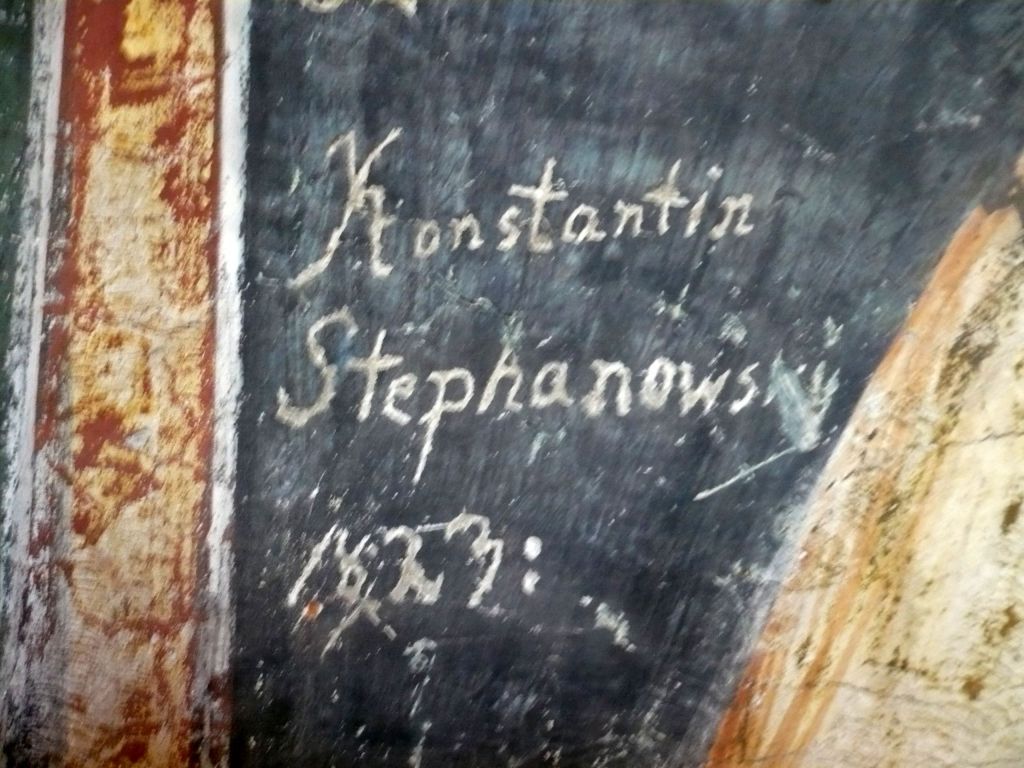 Konstantin
Stephanowsky
1823: